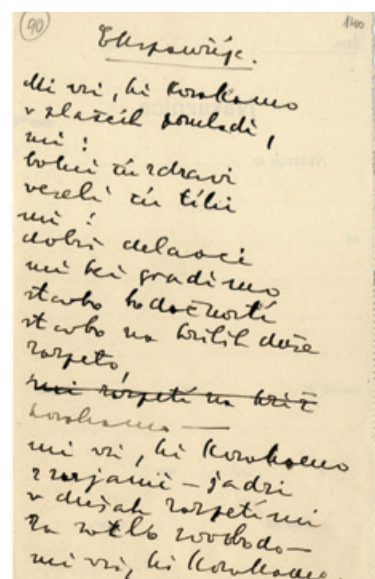 90
140
Ekspanzija.
Mi vsi, ki korakamo
v plaščih pomladi,
mi!
bolni in zdravi
veseli in tihi
mi!
dobri delavci
mi ki gradimo
stavbo bodočnosti
stavbo na krilih duše
razpeto,
mi razpeti na križ
korakamo —
mi vsi, ki korakamo
z zarjami – jadri
v dušah razpetimi
za svobodo —
mi vsi, ki korakamo